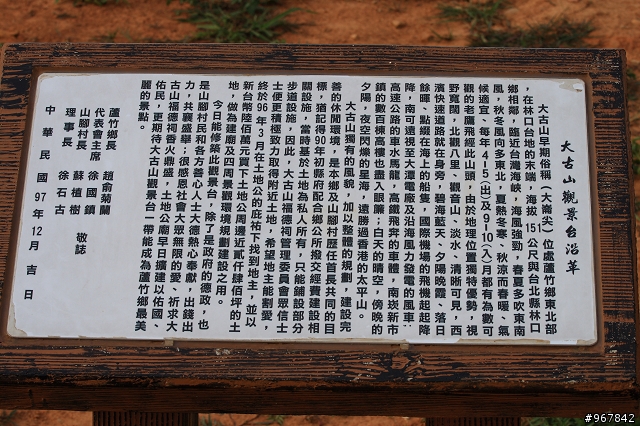 大古山觀景台沿革
大古山早期俗稱（大崙尖）位處蘆竹鄉東北部
，在林口台地的末端，海拔 151 公尺與台北縣林口
鄉相鄰，臨近台灣海峽，海風強勁，春夏多吹東南
風，秋冬風向多東北，夏熱冬寒、秋涼而春暖、氣
候適宜。每年4-5(出)及9-10(入)月都有為數可
觀的老鷹飛經此山頭，由於地理位置獨特優勢，視
野寬闊，北觀八里、觀音山、淡水、清晰可見，西
濱快速道路就在身旁，碧海藍天、夕陽晚霞、落日
餘暉、點綴在海上的船隻，國際機場的飛機起起降
降，南可遠視至大潭電廠及沿海風力發電的風車、
高速公路的車水馬龍，高鐵飛奔的車體，南崁新市
鎮的數百棟高樓也盡入眼簾；白天的晴空，傍晚的
夕陽，夜空閃爍的星海，遠勝過香港的太平山。
大古山獨有的風貌，加以整體的規劃，建設完
善的休閒環境，是本鄉及山腳村歷任首長共同的目
標，猶記得90年初縣府配合鄉公所撥交經費建設相
關設施，當時基於土地為私人所有，只能鋪設部分
步道設施，因此，大古山福德祠管理委員會眾信士
士便更積極致力取得附近土地，希望地主能割愛，
終於96年3月在土地公的庇祐下找到地主，並以
新台幣陸佰萬元買下土地公周邊近貳仟肆佰坪的土
地，做為建廟及四周景觀環境規劃建設之用。
今日能修築此觀景台，除了是政府的德政，也
是山腳村民和各方善心人士大德熱心奉獻，出錢出
力，共襄盛舉；很感恩社會大眾無限的愛、祈求大
古山福德祠香火鼎盛，土地公廟早日擴建以佑國、
佑民，更期待大古山觀景台一帶能成為蘆竹鄉最美
麗的景點。
蘆竹鄉長 趙俞菊蘭
代表會主席 徐國鎮
山腳村長 蘇植樹 敬誌
理事長 徐石古
中華民國97年12月吉日
#967842